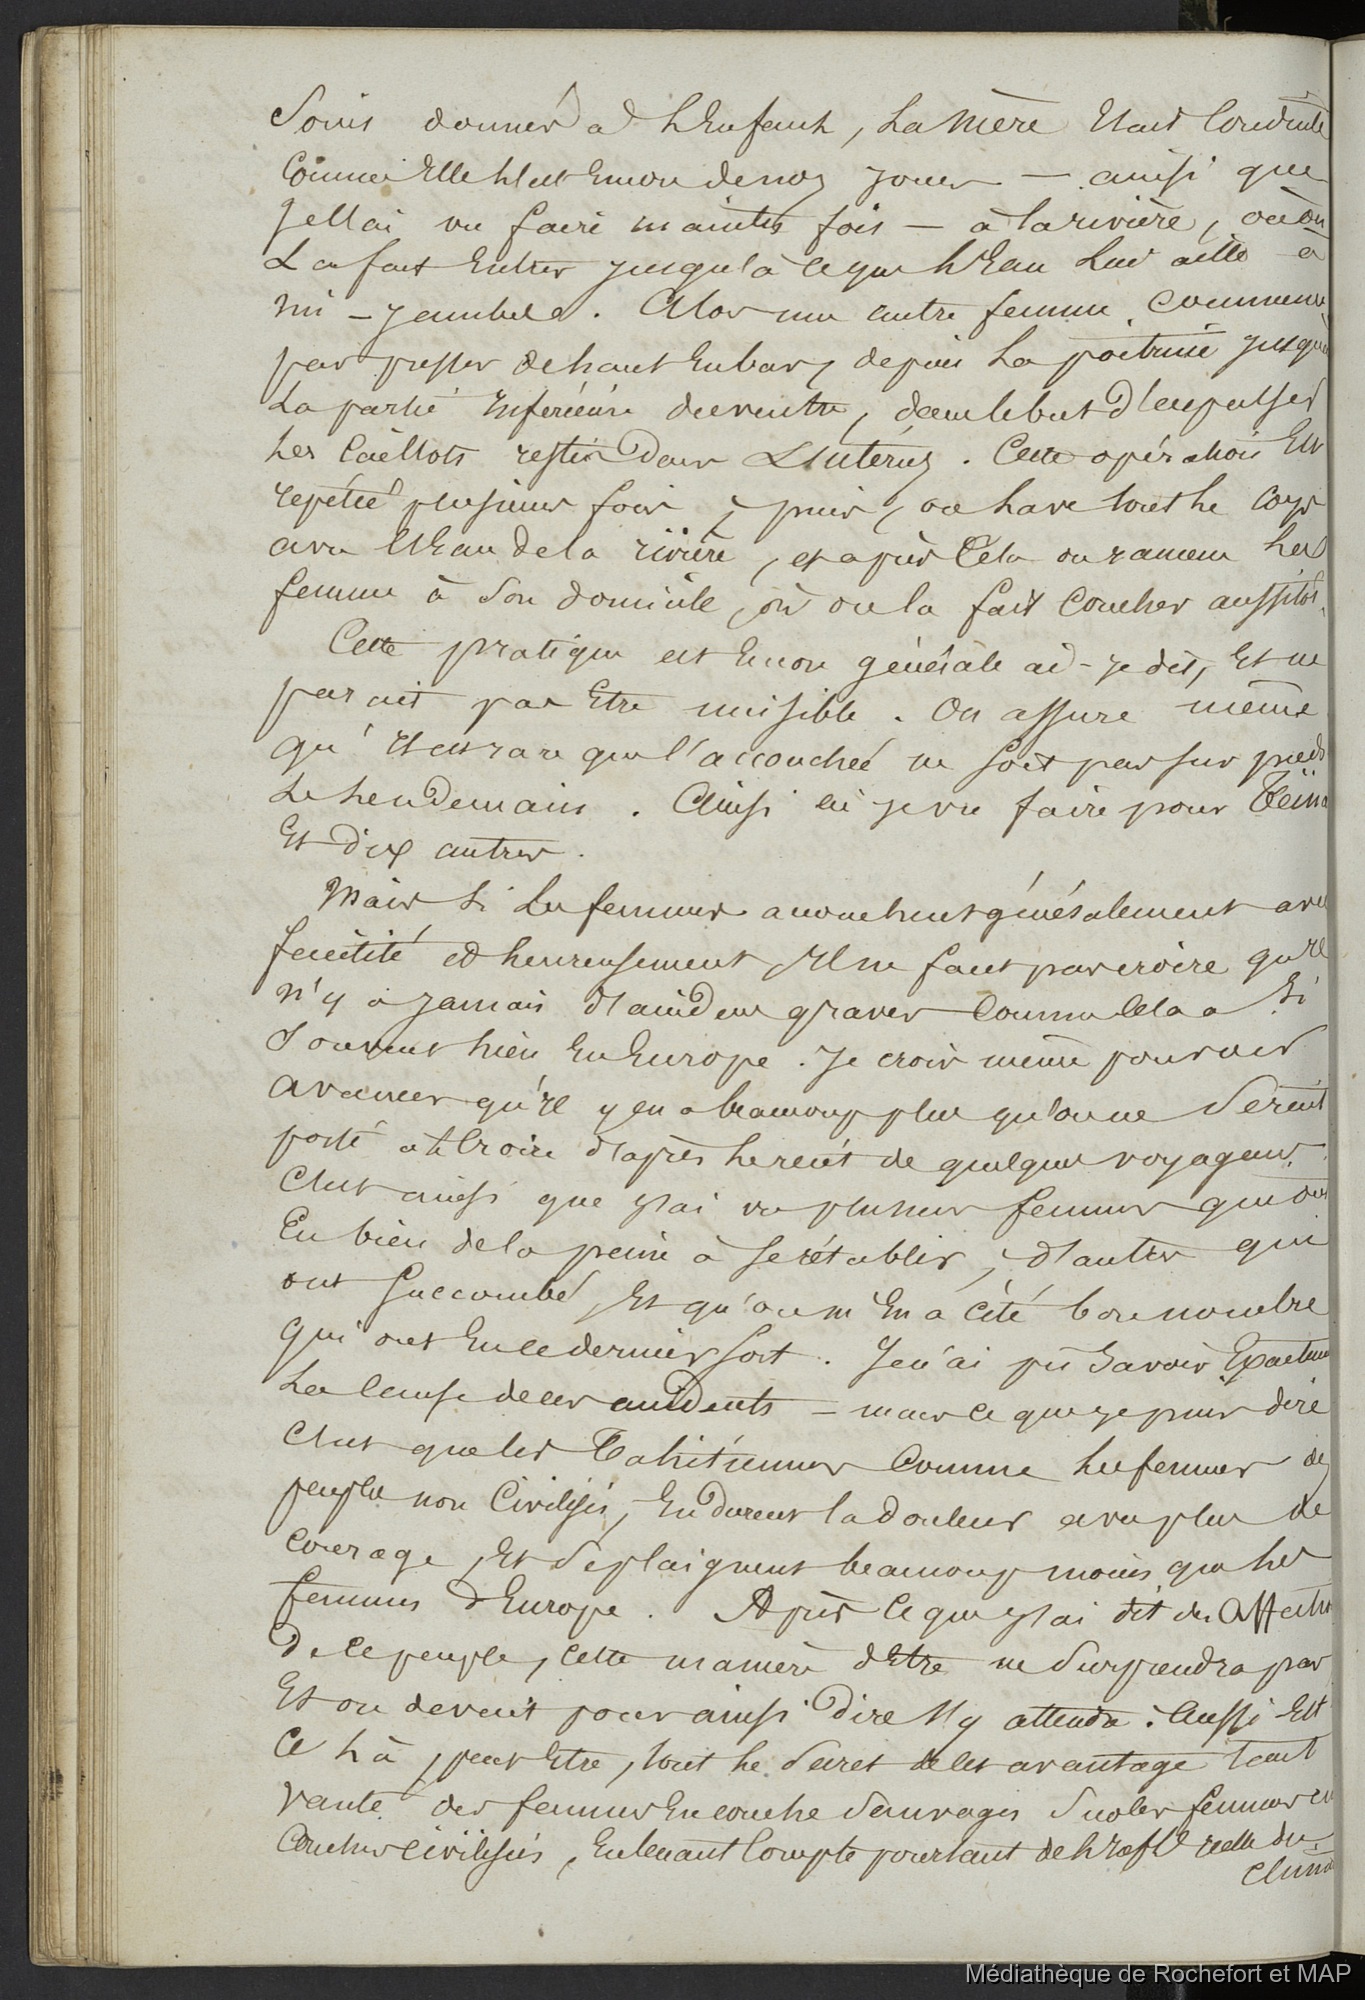 Soins donnés à l'Enfant, La Mère Etait Conduite
Comme Elle l'est Encore de nos jours — ainsi que
je l'ai vu faire maintes fois — à la rivière, où on
La fait Entrer jusqu'à ce que l'Eau Lui aille à
mi-jambes. Alors une autre femme Commence
par presser de haut En bas, depuis La poitrine jusqu'à
La partie Inférieure du ventre, dans le but d'expulser
Les Caillots restés Dans L'Utérus. Cette opération Est
repétée plusieurs fois, puis, on lave tout le corps
avec l'Eau de la rivière, et après Cela on ramene la
femme à Son domicile, où on la fait Coucher aussitôt.
Cette pratique est Encore générale ai-je dit, Et ne
parait pas Etre nuisible. On assure même
qu'Il est rare que l'accouchée ne soit pas sur pieds
Le Lendemain. Ainsi ai je vu faire pour Teina
Et dix autres.
Mais Si Les femmes accouchent généralement avec
facilité et heureusement, Il ne faut pas croire qu'Il
n'y a jamais d'accidents graves Comme Cela a Si
Souvent lieu En Europe. Je crois même pouvoir
avancer qu'Il y en a beaucoup plus qu'on ne Serait
porté à le Croire d'après le récit de quelques voyageurs.
C'est ainsi que j'ai vu plusieurs femmes qui ont
Eu bien de la peine à Se rétablir, d'autres qui
ont Succombé, Et qu'on m'En a Cité bon nombre
qui ont Eu ce dernier Sort. Je n'ai pu Savoir Exactement
La Cause de ces accidents — mais ce que je puis dire
C'est que les Tahitiennes Comme Les femmes des
peuples non Civilisés, Endurent la douleur avec plus de
Courage, Et Se plaignent beaucoup moins que les
femmes d'Europe. Après Ce que j'ai dit des
De Ce peuple, cette manière d'Etre ne Surprendra pas
Et on devait pour ainsi Dire S'y attendre. Aussi Est
Ce là, peut Etre, tout le Secret de cet avantage tant
Vanté des femmes En couche Sauvages Sur les femmes en
Couches Civilisées, En tenant Compte pourtant de réelle du
Climat